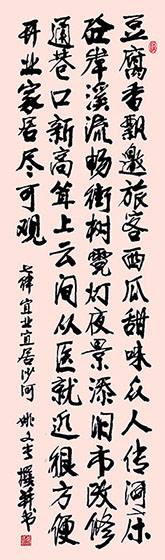 豆腐香飘邀旅客西瓜甜味众人传河床
砼岸溪流畅街树霓灯夜景添闹市改修
通巷口新高耸上云间从医就近很方便
开业家居尽可观
七律 宜业宜居沙河 姚文 撰并书